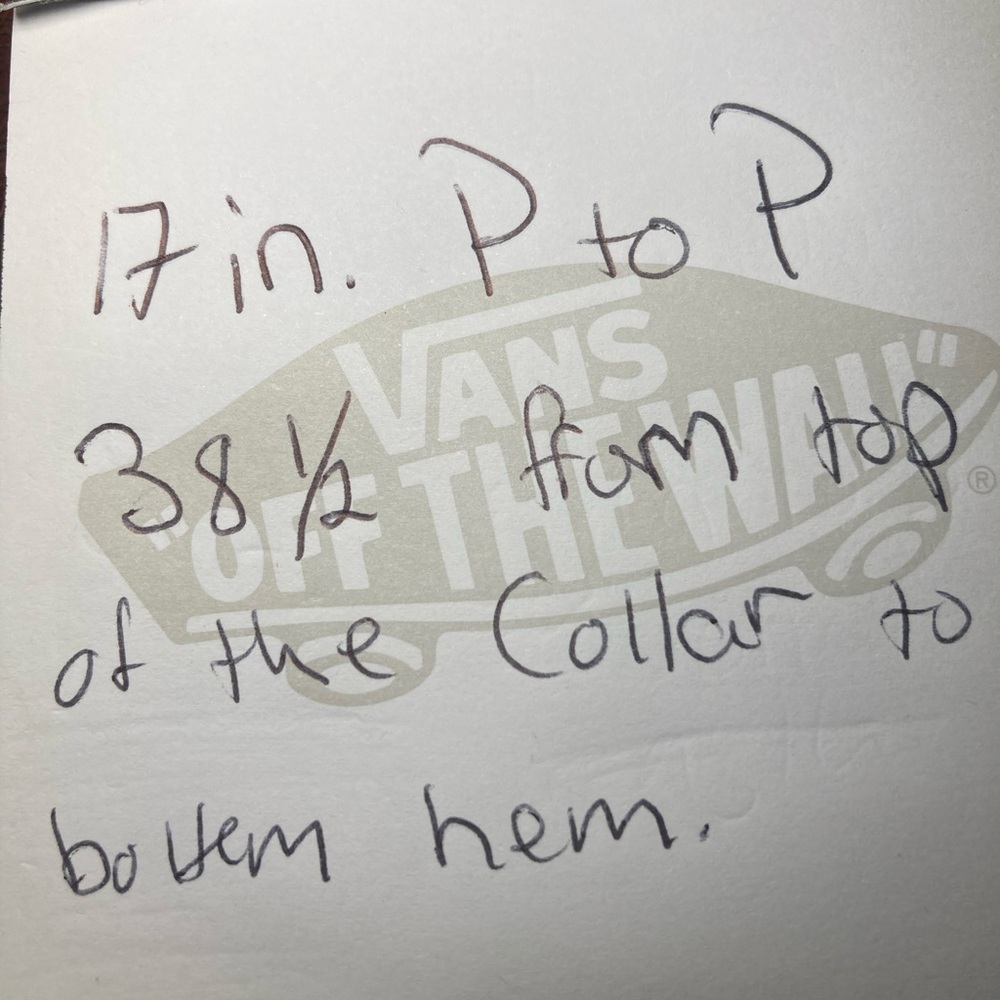 17 in. P to P
VANS
"OFF THE WALL"
®
38 1/2 from top
of the Collar to
bottem hem.